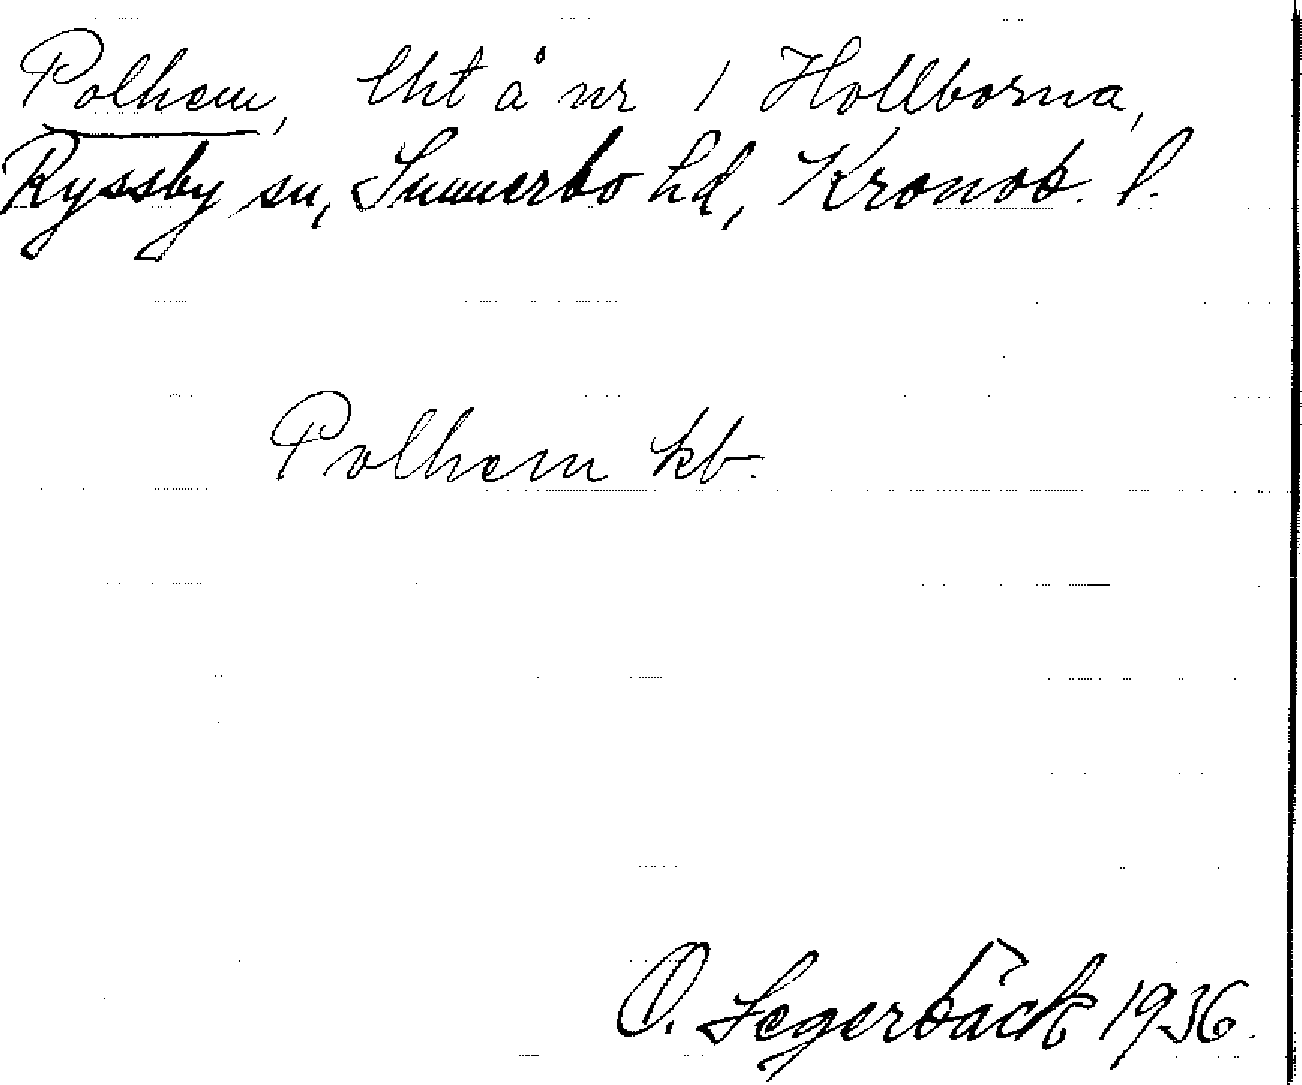 Polhem, lht å nr 1 Hollborna,
Ryssby sn, Sunnerbo hd, Kronob. l.
Polhem kb.
O. Segerbäck 1936.